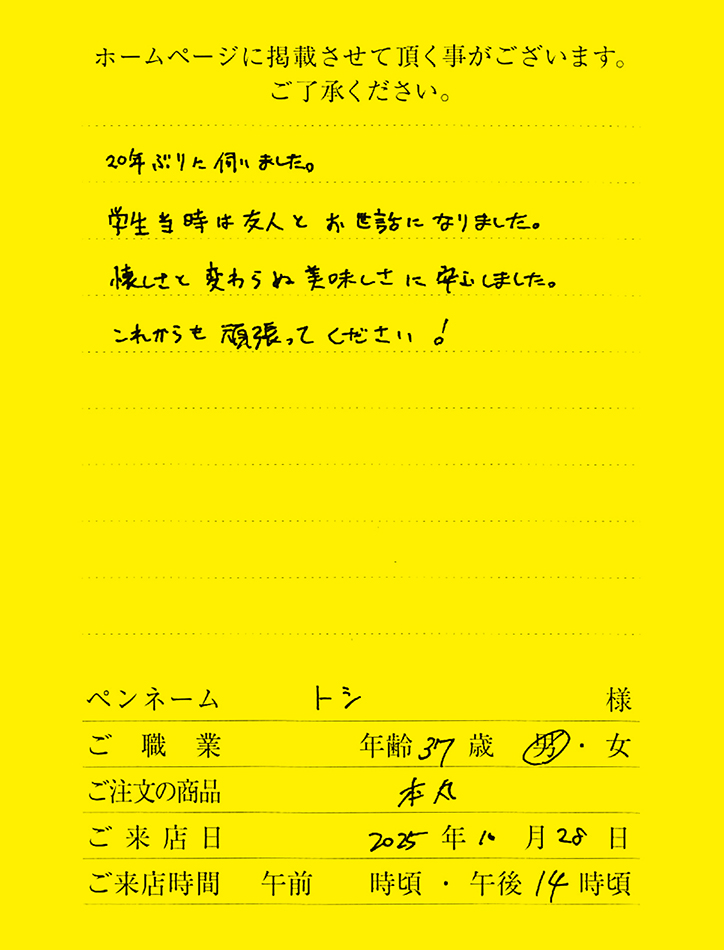 ホームページに掲載させて頂く事がございます。
ご了承ください。
20年ぶりに伺いました。
学生当時は友人とお世話になりました。
懐しさと変わらぬ美味しさに安心しました。
これからも頑張ってください！
ペンネーム トシ 様
ご職業 年齢 37 歳 男・女
ご注文の商品 本丸
ご来店日 2025 年 10 月 28 日
ご来店時間 午前 時頃・午後 14 時頃